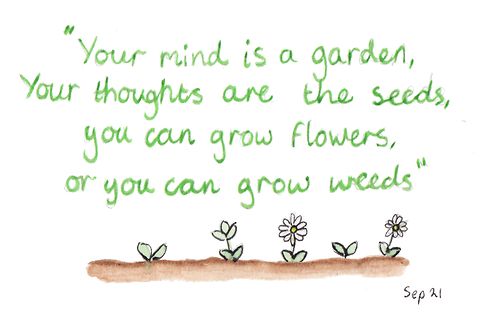 "Your mind is a garden,
Your thoughts are the seeds,
you can grow flowers,
or you can grow weeds"
Sep 21